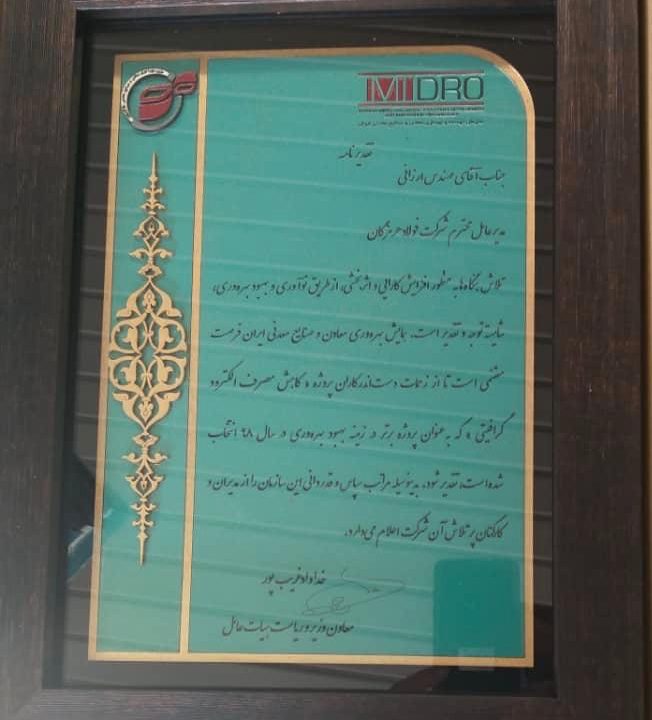 IMIDRO
تقدیرنامه
جناب آقای مهندس ارزانی
مدیرعامل محترم شرکت فولاد هرمزگان
تلاش بنگاه‌ها به منظور افزایش کارایی و اثربخشی، از طریق نوآوری و بهبود بهره‌وری،
شایسته توجه و تقدیر است. همایش بهره‌وری معادن و صنایع معدنی ایران فرصت
مغتنمی است تا از زحمات دست‌اندرکاران پروژه « کاهش مصرف الکترود
گرافیتی » که به عنوان پروژه برتر در زمینه بهبود بهره‌وری در سال ۹۸ انتخاب
شده است، تقدیر شود. بدینوسیله مراتب سپاس و قدردانی این سازمان را از مدیران و
کارکنان پر تلاش آن شرکت اعلام می‌دارد.
خداداد غریب پور
معاون وزیر و ریاست هیات عامل